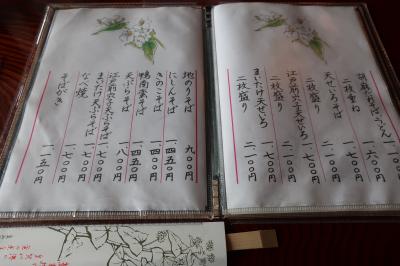 胡麻だれそばうどん 一、六〇〇円
二枚重ね 一、一〇〇円
天せいろそば 一、七〇〇円
二枚盛り 二、一〇〇円
江戸前穴子天せいろ 一、七〇〇円
二枚盛り 二、一〇〇円
まいたけ天せいろ 一、七〇〇円
二枚盛り 二、一〇〇円
地のりそば 九〇〇円
にしんそば 一、四五〇円
きのこそば 一、〇〇〇円
鴨南蛮そば 一、四五〇円
天ぷらそば 一、八〇〇円
江戸前穴子天ぷらそば 一、七〇〇円
まいたけ天ぷらそば 一、七〇〇円
なべ焼 一、七〇〇円
そばがき 一、一五〇円